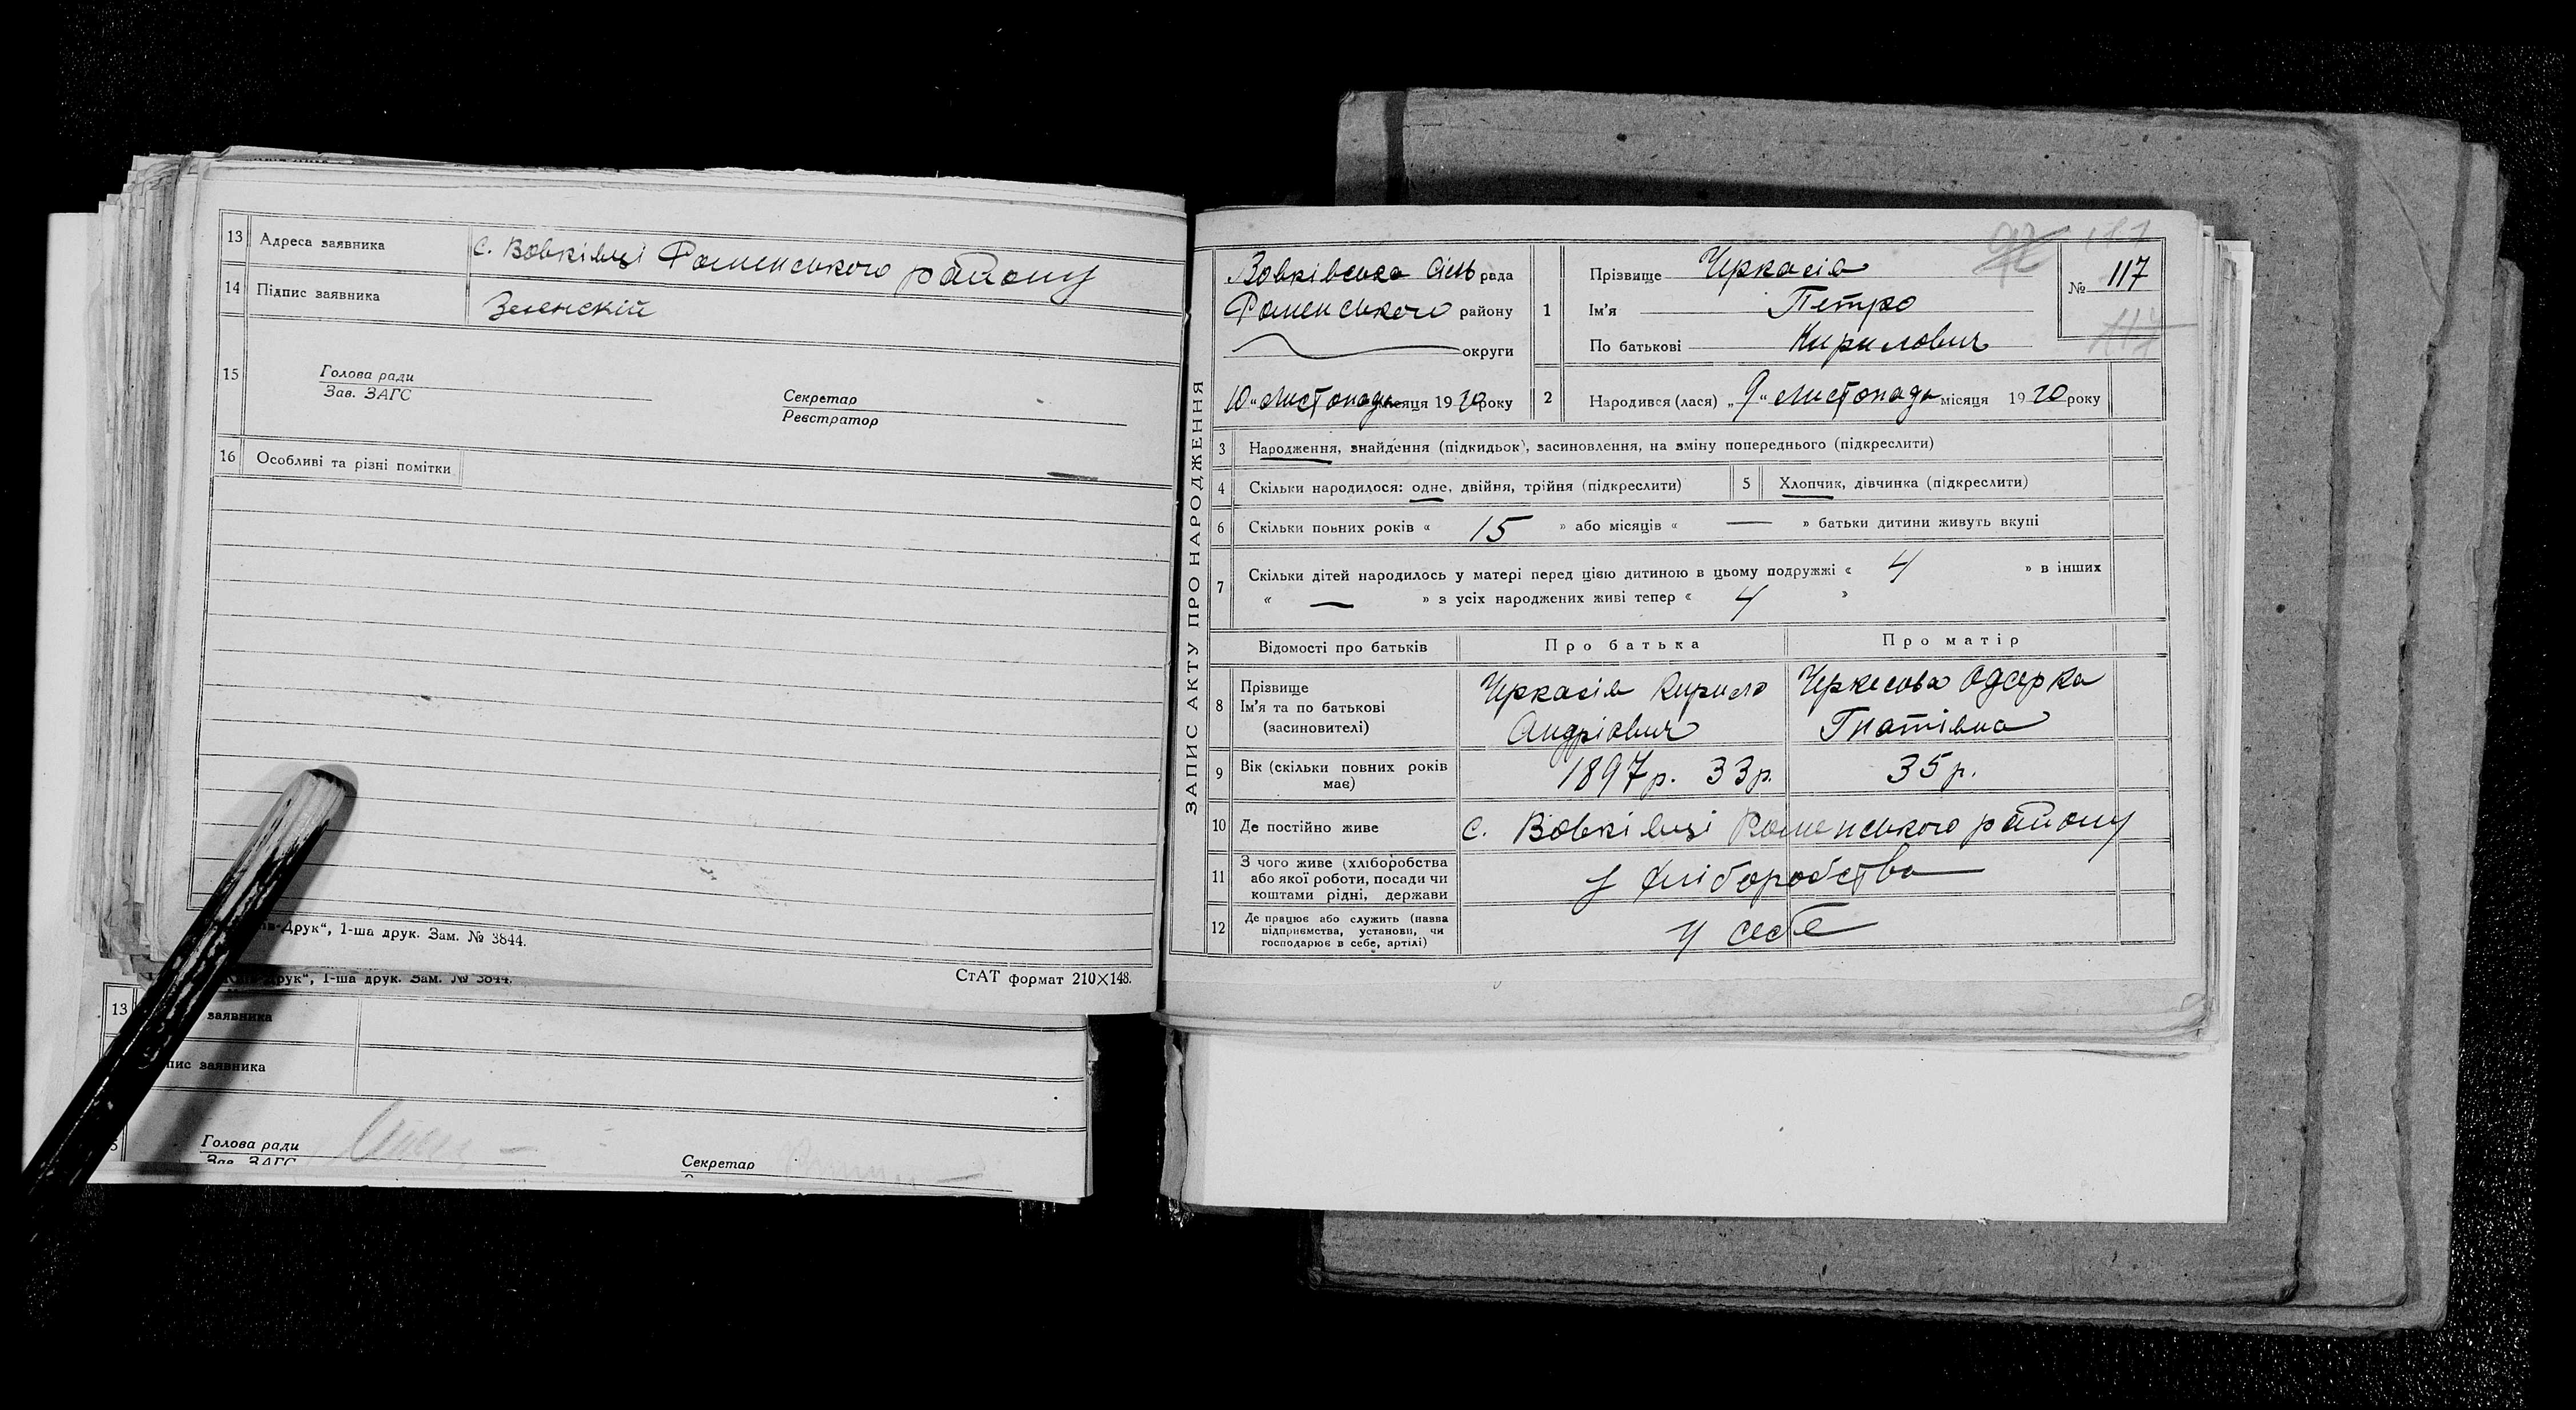 13 Адреса заявника с. Вовківці Роменського району
14 Підпис заявника Зеленскій
15 Голова ради
Зав. ЗАГС
Секретар
Реєстратор
16 Особливі та різні помітки
-Друк“, 1-ша друк. Зам. № 3844.
СтАТ формат 210×148.
рук“, 1-ша друк. Зам. № 3844.
13 заявника
пис заявника
Голова ради
Зав. ЗАГС
Секретар
ЗАПИС АКТУ ПРО НАРОДЖЕННЯ
Вовківська сіль рада
Роменського району
округи
10 „ листопада місяця 19 30 року
1 Прізвище Черкасів
Ім'я Петро
По батькові Кирилович
№ 117
117
2 Народився (лася) „ 9 “ листопада місяця 19 30 року
3 Народження, знайдення (підкидьок), засиновлення, на зміну попереднього (підкреслити)
4 Скільки народилося: одне, двійня, трійня (підкреслити) 5 Хлопчик, дівчинка (підкреслити)
6 Скільки повних років « 15 » або місяців « — » батьки дитини живуть вкупі
7 Скільки дітей народилось у матері перед цією дитиною в цьому подружжі « 4 » в інших
« — » з усіх народжених живі тепер « 4 »
Відомості про батьків Про батька Про матір
8 Прізвище
Ім'я та по батькові
(засиновителі)
Черкасів Кирило
Андріович
Черкесова Одарка
Гнатівна
9 Вік (скільки повних років
має)
1897р. 33р. 35р.
10 Де постійно живе с. Вовківці Роменського району
11 З чого живе (хліборобства
або якої роботи, посади чи
коштами рідні, держави
з хліборобства
12 Де працює або служить (назва
підприємства, установи, чи
господарює в себе, артілі)
у себе